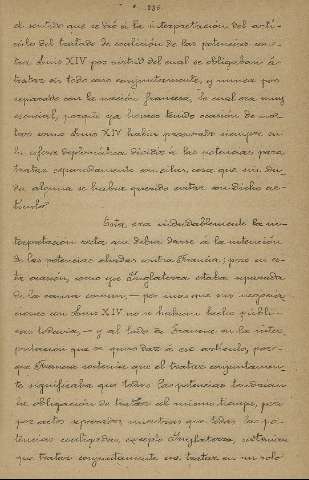 el sentido que se dió á la interpretación del artí-
culo del tratado de coalición de las potencias con-
tra Luis XIV por virtud del cual se obligaban á
tratar en todo caso conjuntamente, y nunca por
separado con la nación francesa, lo cual era muy
esencial, porque ya hemos tenido ocasión de no-
tar como Luis XIV había procurado siempre en
la esfera diplomática dividir á las potencias para
tratar separadamente con ellas, cosa que sin du-
da alguna se había querido evitar con dicho ar-
tículo.
Esta era indudablemente la in-
terpretación recta que debía darse á la intención
de las potencias aliadas contra Francia; pero en es-
ta ocasión, como que Inglaterra estaba separada
de la causa común, — por más que sus negocia-
ciones con Luis XIV no se hubiesen hecho públi-
cas todavía, — y al lado de Francia en la inter-
pretación que se quiso dar á ese artículo, por-
que Francia sostenía que el tratar conjuntamen-
te significaba que todas las potencias tendrían
la obligación de tratar al mismo tiempo, pero
por actos separados, mientras que todas las po-
tencias coaligadas, excepto Inglaterra, sostenían
que tratar conjuntamente era tratar en un solo